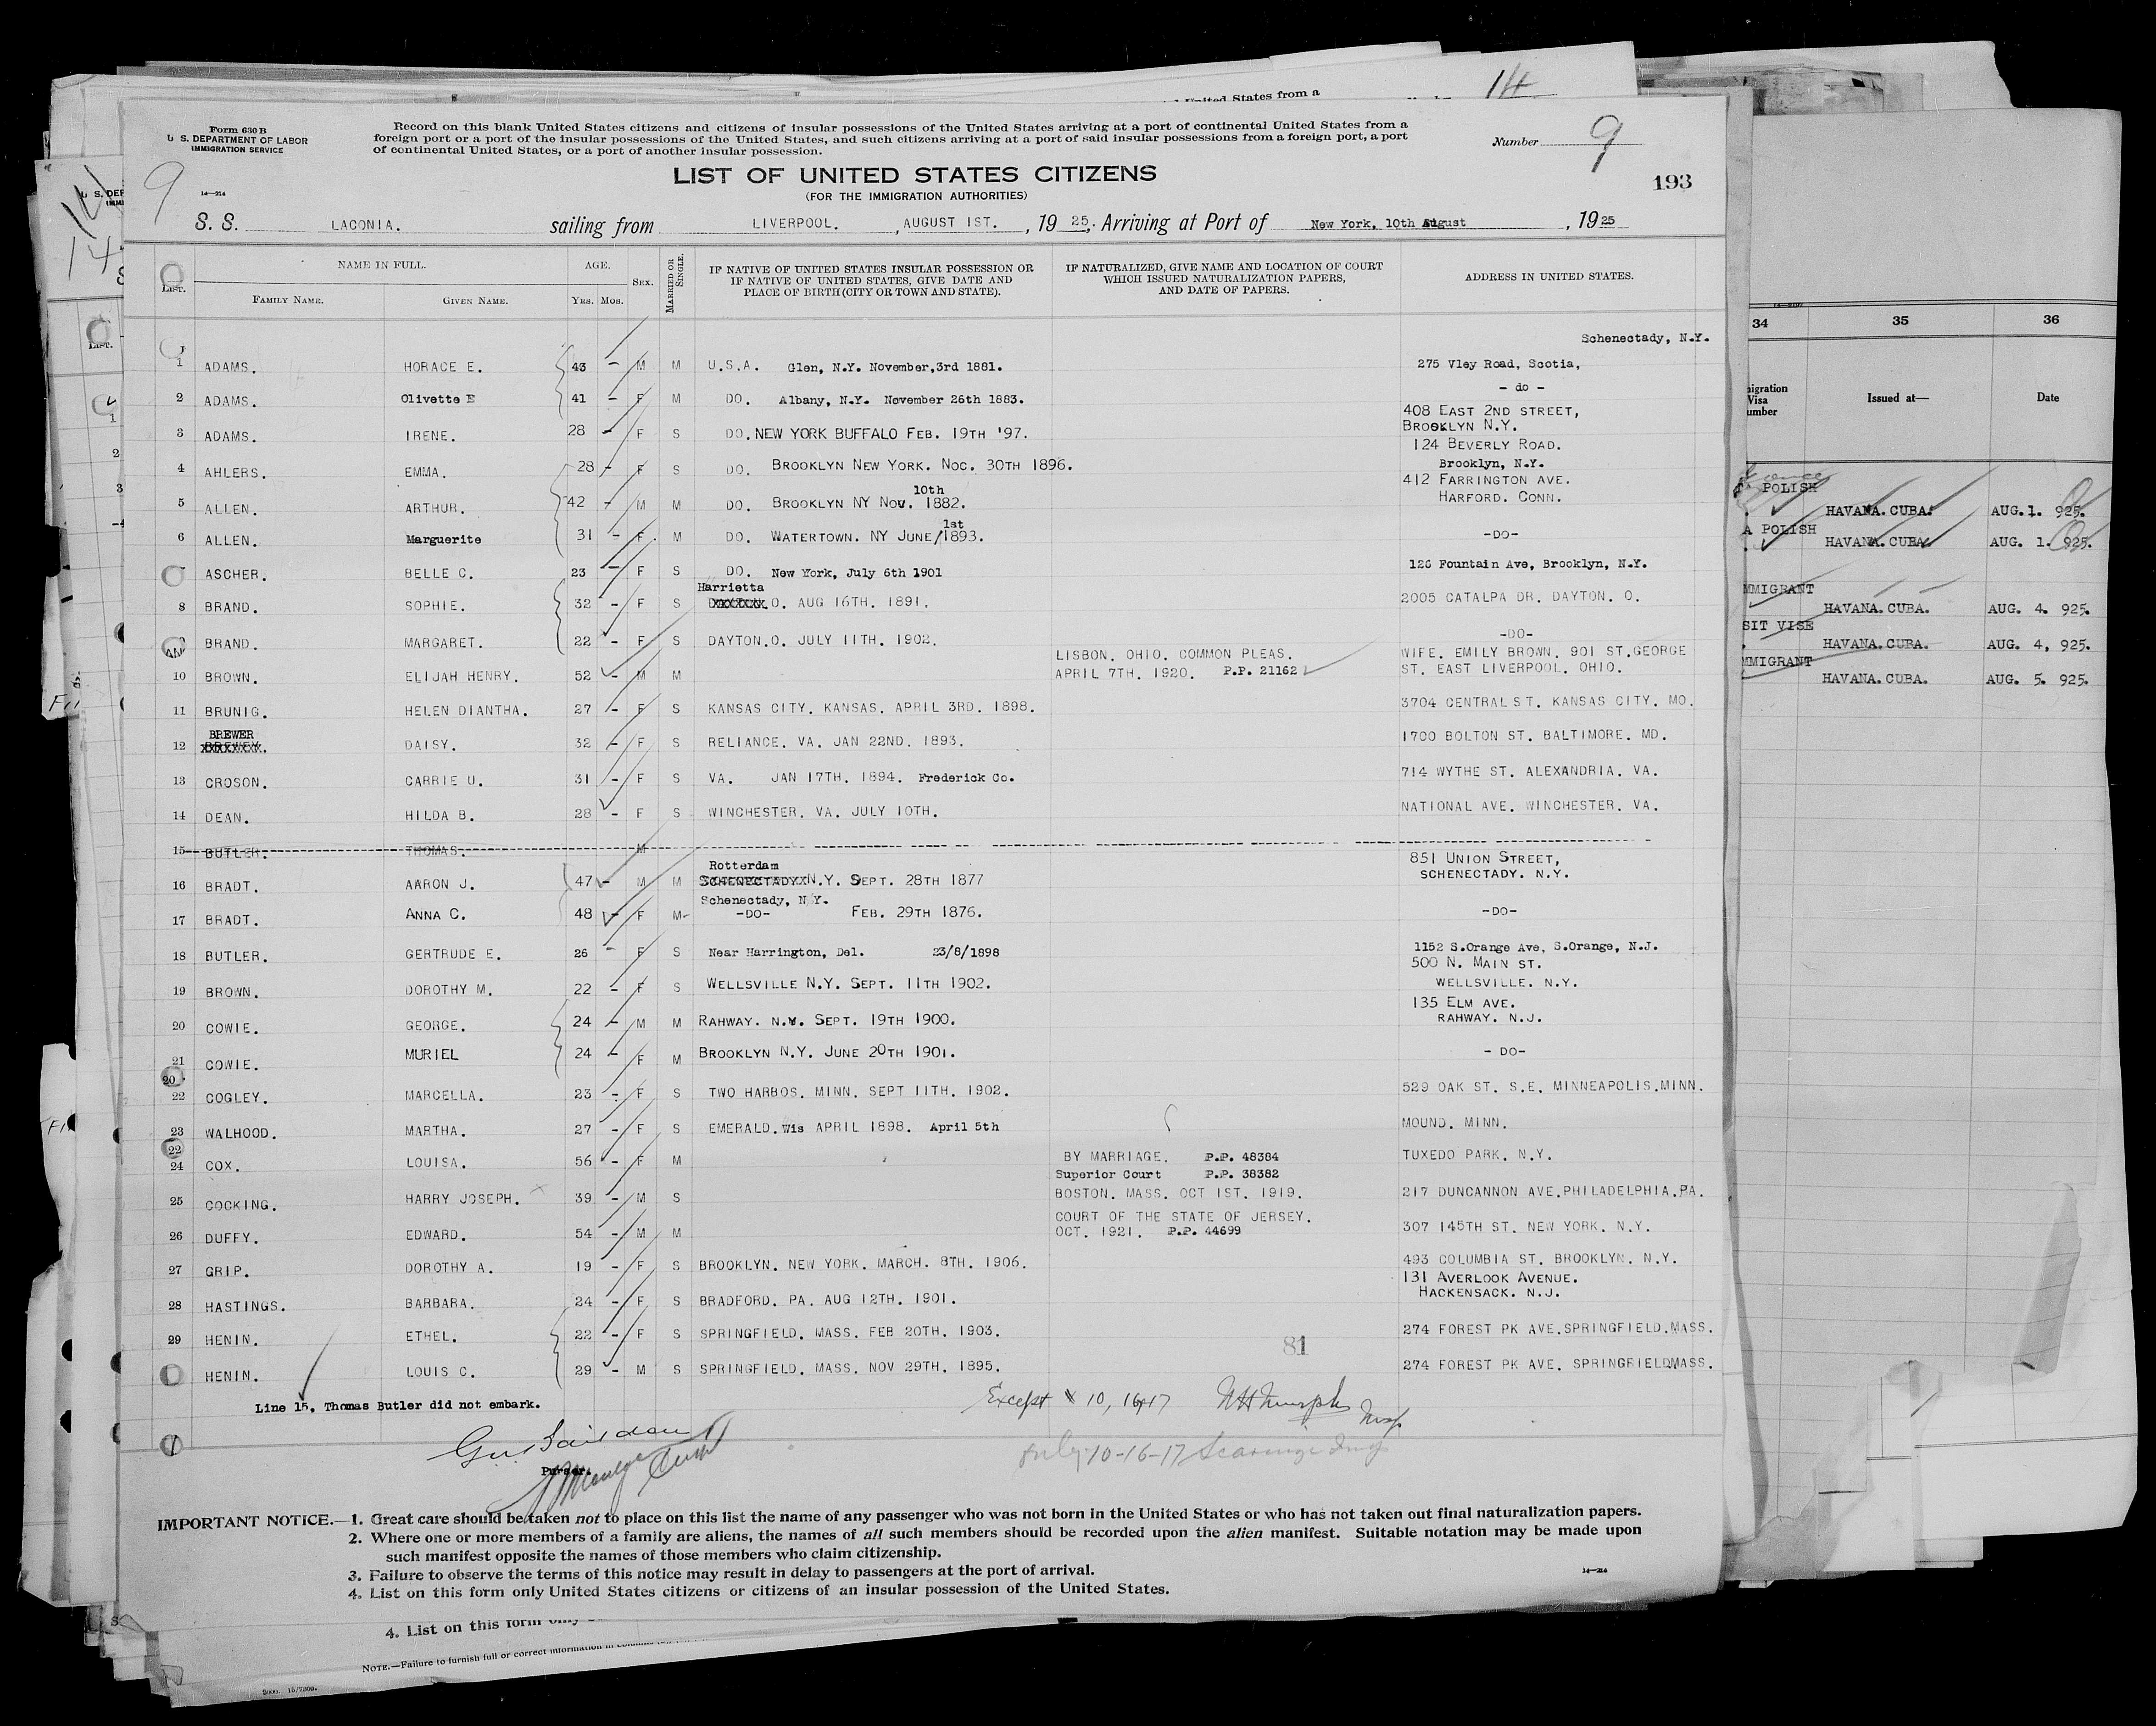 United States from a
14
Form 630 B
U. S. DEPARTMENT OF LABOR
IMMIGRATION SERVICE
14—214
Record on this blank United States citizens and citizens of insular possessions of the United States arriving at a port of continental United States from a
foreign port or a port of the insular possessions of the United States, and such citizens arriving at a port of said insular possessions from a foreign port, a port
of continental United States, or a port of another insular possession.
Number 9
9
LIST OF UNITED STATES CITIZENS
(FOR THE IMMIGRATION AUTHORITIES)
193
S. S. LACONIA. sailing from LIVERPOOL. , AUGUST 1ST. , 19 25, Arriving at Port of New York, 10th August , 19 25
LIST. NAME IN FULL. AGE. SEX. MARRIED OR SINGLE. IF NATIVE OF UNITED STATES INSULAR POSSESSION OR IF NATIVE OF UNITED STATES, GIVE DATE AND PLACE OF BIRTH (CITY OR TOWN AND STATE). IF NATURALIZED, GIVE NAME AND LOCATION OF COURT WHICH ISSUED NATURALIZATION PAPERS, AND DATE OF PAPERS. ADDRESS IN UNITED STATES.
FAMILY NAME. GIVEN NAME. YRS. MOS.
Schenectady, N.Y.
1 ADAMS. HORACE E. 43 - M M U.S.A. Glen, N.Y. November,3rd 1881. 275 Vley Road, Scotia,
2 ADAMS. Olivette E 41 - F M DO. Albany, N.Y. November 26th 1883. - do -
408 EAST 2ND STREET,
3 ADAMS. IRENE. 28 - F S DO. NEW YORK BUFFALO FEB. 19TH '97. BROOKLYN N.Y.
124 BEVERLY ROAD.
4 AHLERS. EMMA. 28 - F S DO. BROOKLYN NEW YORK. NOC. 30TH 1896. Brooklyn, N.Y.
412 FARRINGTON AVE.
10th
5 ALLEN. ARTHUR. 42 - M M DO. BROOKLYN NY NOV. 1882. HARFORD. CONN.
1st
6 ALLEN. Marguerite 31 - F. M DO. WATERTOWN. NY JUNE/1893. -DO-
ASCHER. BELLE C. 23 - F S DO. New York, July 6th 1901 126 Fountain Ave, Brooklyn, N.Y.
Harrietta
8 BRAND. SOPHIE. 32 - F S O. AUG 16TH. 1891. 2005 CATALPA DR. DAYTON. O.
9 BRAND. MARGARET. 22 - F S DAYTON.O. JULY 11TH. 1902. -DO-
LISBON. OHIO. COMMON PLEAS. WIFE. EMILY BROWN. 901 ST.GEORGE
10 BROWN. ELIJAH HENRY. 52 - M M APRIL 7TH. 1920. P.P. 21162 ST. EAST LIVERPOOL. OHIO.
11 BRUNIG. HELEN DIANTHA. 27 - F S KANSAS CITY. KANSAS. APRIL 3RD. 1898. 3704 CENTRAL ST. KANSAS CITY. MO.
BREWER
12 DAISY. 32 - F S RELIANCE. VA. JAN 22ND. 1893. 1700 BOLTON ST. BALTIMORE. MD.
13 CROSON. CARRIE U. 31 - F S VA. JAN 17TH. 1894. Frederick Co. 714 WYTHE ST. ALEXANDRIA. VA.
14 DEAN. HILDA B. 28 - F S WINCHESTER. VA. JULY 10TH. NATIONAL AVE. WINCHESTER. VA.
15 BUTLER. THOMAS. M
Rotterdam 851 UNION STREET,
16 BRADT. AARON J. 47 - M M SCHENECTADY N.Y. SEPT. 28TH 1877 SCHENECTADY. N.Y.
Schenectady, N.Y.
17 BRADT. ANNA C. 48 - F M- -DO- FEB. 29TH 1876. -DO-
18 BUTLER. GERTRUDE E. 26 - F S Near Harrington, Del. 23/8/1898 1152 S.Orange Ave, S.Orange, N.J.
500 N. MAIN ST.
19 BROWN. DOROTHY M. 22 - F S WELLSVILLE N.Y. SEPT. 11TH 1902. WELLSVILLE. N.Y.
135 ELM AVE.
20 COWIE. GEORGE. 24 - M M RAHWAY. N.Y. SEPT. 19TH 1900. RAHWAY. N.J.
21 COWIE. MURIEL 24 - F M BROOKLYN N.Y. JUNE 20TH 1901. - DO-
20
22 COGLEY. MARCELLA. 23 - F S TWO HARBOS. MINN. SEPT 11TH. 1902. 529 OAK ST. S.E. MINNEAPOLIS.MINN.
23 WALHOOD. MARTHA. 27 - F S EMERALD.Wis APRIL 1898. April 5th MOUND. MINN.
22
24 COX. LOUISA. 56 - F M BY MARRIAGE. P.P. 48384 TUXEDO PARK. N.Y.
Superior Court P.P. 38382
25 COCKING. HARRY JOSEPH. 39 - M S BOSTON. MASS. OCT 1ST. 1919. 217 DUNCANNON AVE.PHILADELPHIA.PA.
COURT OF THE STATE OF JERSEY.
26 DUFFY. EDWARD. 54 - M M OCT. 1921. P.P. 44699 307 145TH ST. NEW YORK. N.Y.
27 GRIP. DOROTHY A. 19 - F S BROOKLYN. NEW YORK. MARCH. 8TH. 1906. 493 COLUMBIA ST. BROOKLYN. N.Y.
131 AVERLOOK AVENUE.
28 HASTINGS. BARBARA. 24 - F S BRADFORD. PA. AUG 12TH. 1901. HACKENSACK. N.J.
29 HENIN. ETHEL. 22 - F S SPRINGFIELD. MASS. FEB 20TH. 1903. 274 FOREST PK AVE.SPRINGFIELD.MASS.
81
HENIN. LOUIS C. 29 - M S SPRINGFIELD. MASS. NOV 29TH. 1895. 274 FOREST PK AVE. SPRINGRIELDMASS.
Line 15, Thomas Butler did not embark.
Except 10, 16, 17
Purser.
only 10-16-17
IMPORTANT NOTICE.—1. Great care should be taken not to place on this list the name of any passenger who was not born in the United States or who has not taken out final naturalization papers.
2. Where one or more members of a family are aliens, the names of all such members should be recorded upon the alien manifest. Suitable notation may be made upon
such manifest opposite the names of those members who claim citizenship.
3. Failure to observe the terms of this notice may result in delay to passengers at the port of arrival.
4. List on this form only United States citizens or citizens of an insular possession of the United States.
14—214
4. List on this form only
NOTE.—Failure to furnish full or correct information in columns
34 35 36
Issued at— Date
POLISH
HAVANA.CUBA. AUG.1. 925.
A POLISH
HAVANA.CUBA. AUG. 1. 925.
MMIGRANT
HAVANA.CUBA. AUG. 4. 925.
SIT VISE
HAVANA.CUBA. AUG. 4, 925.
MMIGRANT
HAVANA.CUBA. AUG. 5. 925.